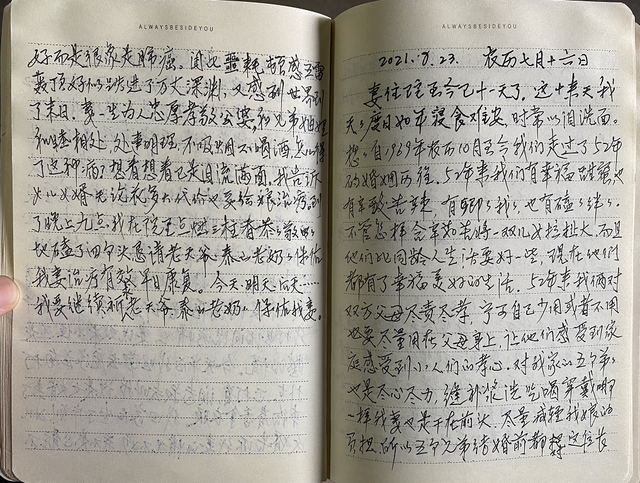 ALWAYSBESIDEYOU
好而是很象是肺癌。闻此噩耗，顿感五雷
轰顶好似跌进了万丈深渊，又感到世界到
了末日。妻一生为人忠厚孝敬公婆，和兄弟姐妹
和睦相处，处事明理，不吸烟不喝酒，怎么得
了这种病？想着想着已是泪流满面。我告诉
女儿女婿无论花多大代价也要给娘治病，到
了晚上九点，我在院正点燃三柱香恭恭敬敬
地磕了四个头恳请老天爷、泰山老奶奶保佑
我妻治疗有效早日康复。今天、明天、后天……
我要继续祈老天爷、泰山老奶奶保佑我妻。
ALWAYSBESIDEYOU
2021.8.23. 农历七月十六日
妻住院至今已十一天了。这十来天我
天天度日如年寝食难安，时常以泪洗面。
想，自1969年农历10月至今我们走过了52年
的婚姻历程。52年来我们有幸福甜蜜也
有辛酸苦辣，有卿卿我我也有磕磕绊绊。
不管怎样含辛茹苦将一双儿女拉扯大，而且
他们比同龄人生活要好一些，现在他们
都有了幸福美好的生活。52年来我俩对
双方父母尽责尽孝，宁可自己少用或者不用
也要尽量用在父母身上，让他们感受到家
庭感受到儿人们的孝心。对我家的五个弟
也是尽心尽力，缝补浆洗吃喝穿戴哪
一样我妻也是干在前头，尽量减轻我娘的
负担，所以五个兄弟结婚前都